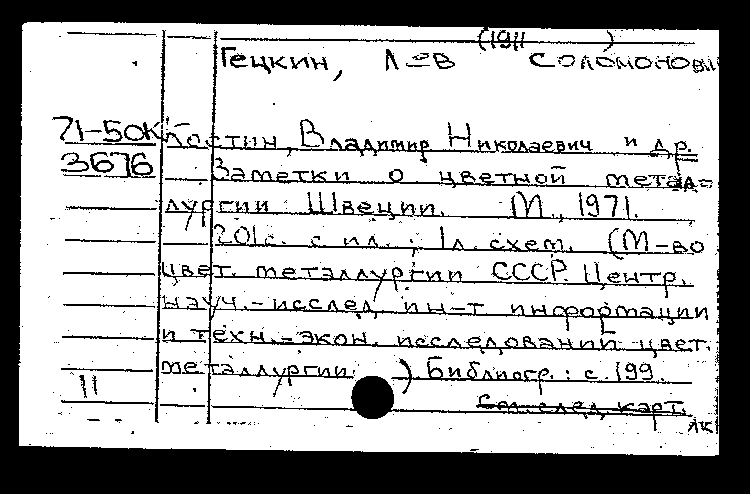 (1911 )
Гецкин, Лев Соломонович
71-50К Костин, Владимир Николаевич и др.
3676 Заметки о цветной метал=
лургии Швеции. М., 1971.
201с. с ил.; 1л. схем. (М-во
цвет. металлургии СССР. Центр.
науч.-исслед. ин-т информации
и техн.-экон. исследований цвет.
металлургии. ) Библиогр.: с. 199.
11
См. след. карт.